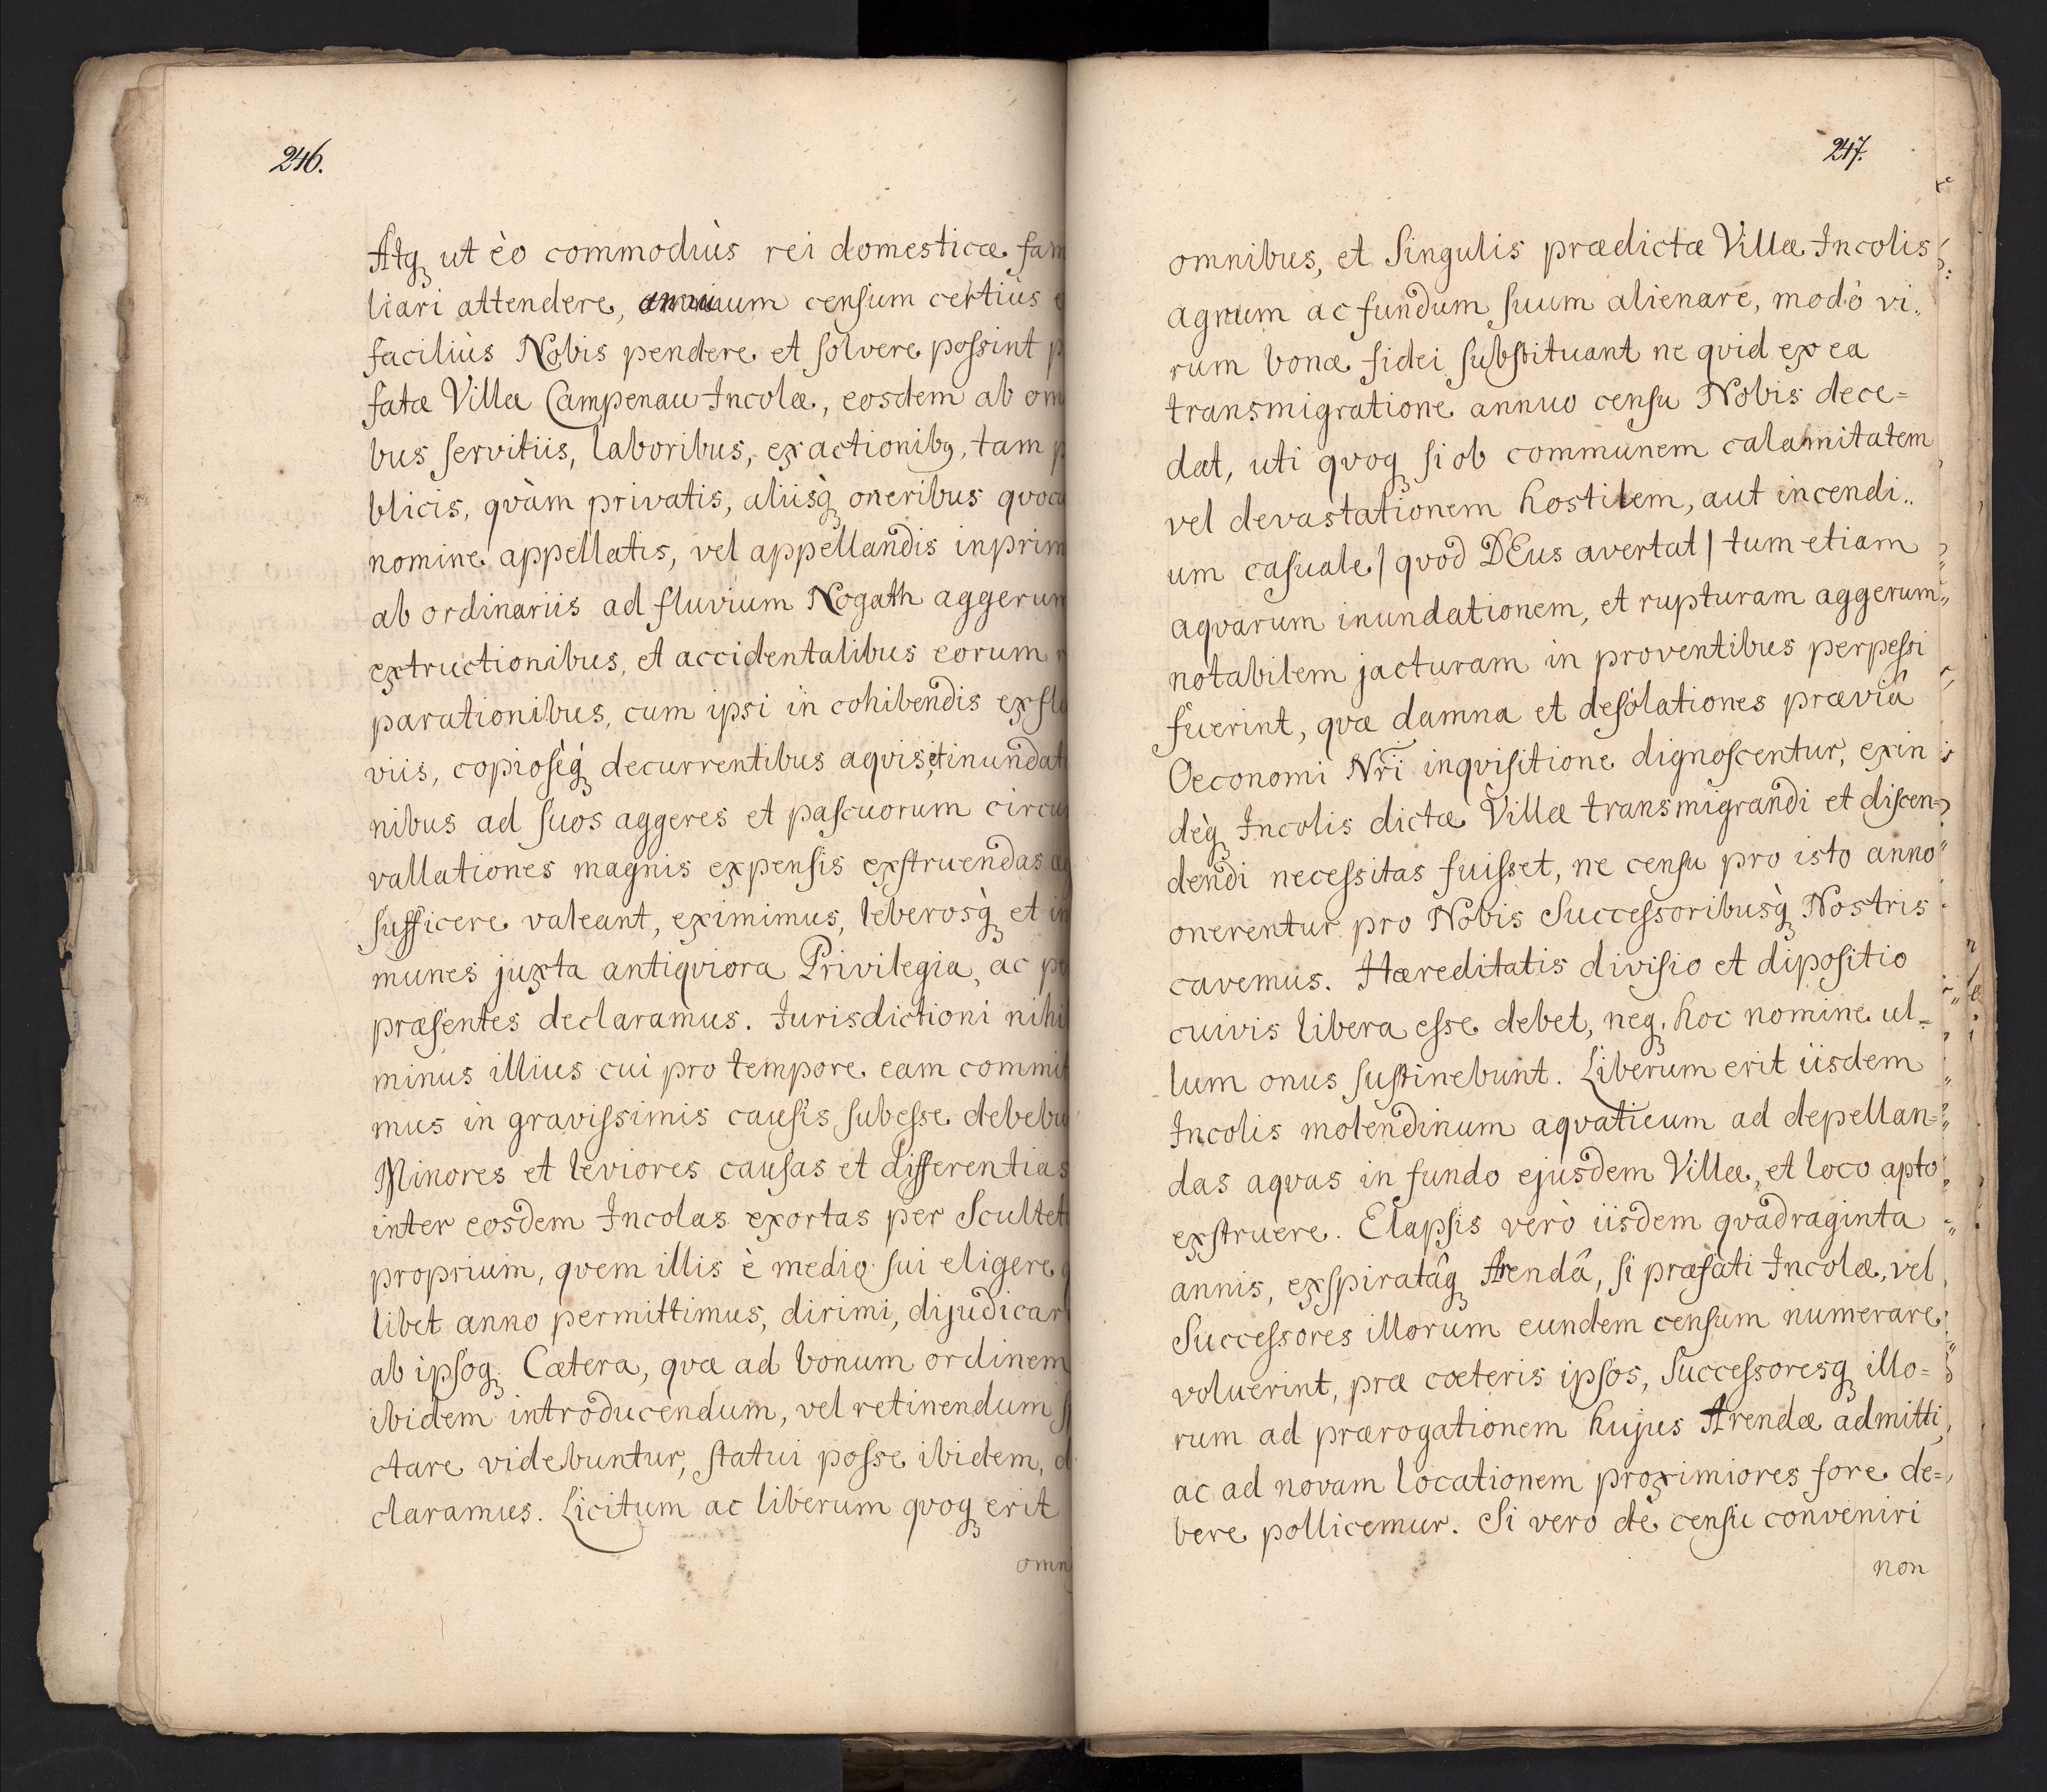 246.
Atq ut èo commodiùs rei domesticæ fam
liari attendere, annuum censum certiùs e
faciliùs Nobis pendere et solvere possint p
fatæ Villæ Campenau Incolæ, eosdem ab om
bus servitiis, laboribus, exactionibq, tam p
blicis, qvàm privatis, aliisq̀ oneribus qvocu
nomine appellatis, vel appellandis inprim
ab ordinariis ad fluvium Nogath aggerum
extructionibus, et accidentalibus eorum r
parationibus, cum ipsi in cohibendis ex flu
viis, copiosèq́ decurrentibus aqvis, et inundati
nibus ad suos aggeres et pascuorum circum
vallationes magnis expensis exstruendas æg
sufficere valeant, eximimus, leberosq̀ et im
munes juxta antiqviora Privilegia, ac pe
præsentes declaramus. Iurisdictioni nihil
minus illius cui pro tempore eam commit
mus in gravissimis causis subesse debebu
Minores et leviores causas et differentias
inter eosdem Incolas exortas per Scultet
proprium, qvem illis è medio sui eligere q
libet anno permittimus, dirimi, dijudicari
ab ipsoq. Cætera, qvæ ad bonum ordinem
ibidem introducendum, vel retinendum sp
ctare videbuntur, statui posse ibidem, d
claramus. Licitum ac liberum qvoq erit
omni
247.
omnibus, et Singulis prædictæ Villæ Incolis
agrum ac fundum suum alienare, modò vi„
rum bonæ fidei substituant ne qvid ex ea
transmigratione annuo censu Nobis dece=
dat, uti qvoq si ob communem calamitatem
vel devastationem hostilem, aut incendi„
um casuale / qvod DEus avertat / tum etiam
aqvarum inundationem, et rupturam aggerum
notabilem jacturam in proventibus perpessi
fuerint, qvæ damna et desolationes præviâ
Oeconomi Nr̃i inqvisitione dignoscentur, exin
deq̀ Incolis dictæ Villæ transmigrandi et discen=
dendi necessitas fuisset, ne censu pro isto anno
onerentur pro Nobis Successoribusq̀ Nostris
cavemus. Hæreditatis divisio et dipositio
cuivis libera esse debet, neq. hoc nomine ul=
lum onus sustinebunt. Liberum erit iisdem
Incolis molendinum aqvaticum ad depellan=
das aqvas in fundo ejusdem Villæ, et loco apto
exstruere. Elapsis verò iisdem qvadraginta
annis, exspiratâq Arendâ, si præfati Incolæ, vel
Successores illorum eundem censum numerare
voluerint, præ cæteris ipsos, Successoresq illo=
rum ad prærogationem hujus Arendæ admitti,
ac ad novam locationem proximiores fore de=
bere pollicemur. Si vero de censu conveniri
non